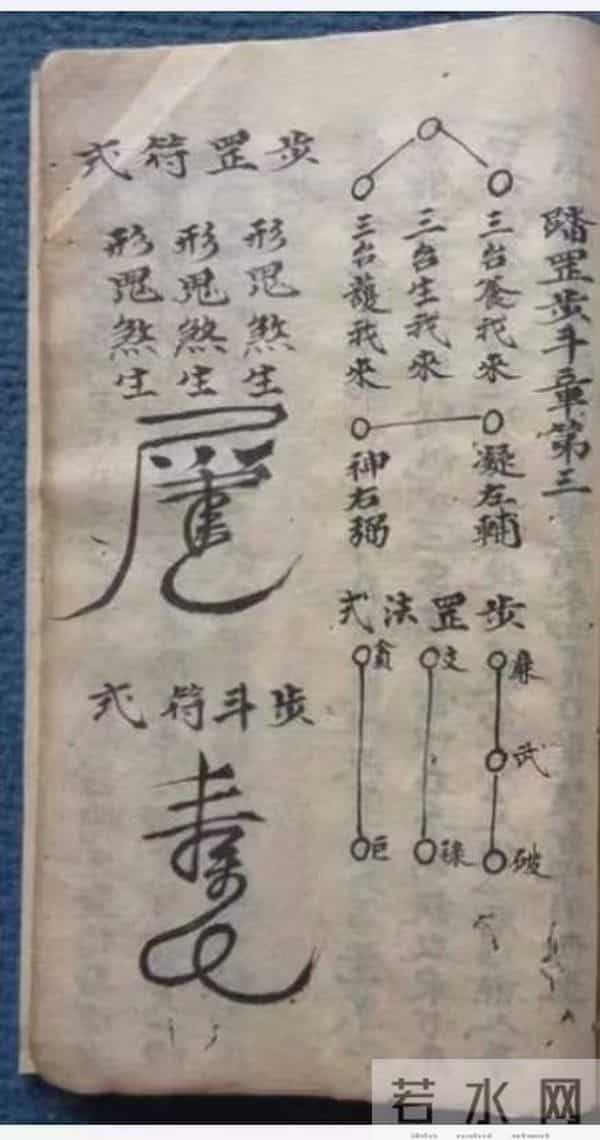 踏罡步斗章第三
三台養我來
三台生我來
三台護我來
凝左輔
神右弼
步罡法式
廉
武
破
文
祿
貪
巨
步罡符式
形鬼煞生
形鬼煞生
形鬼煞生
步斗符式
若水网